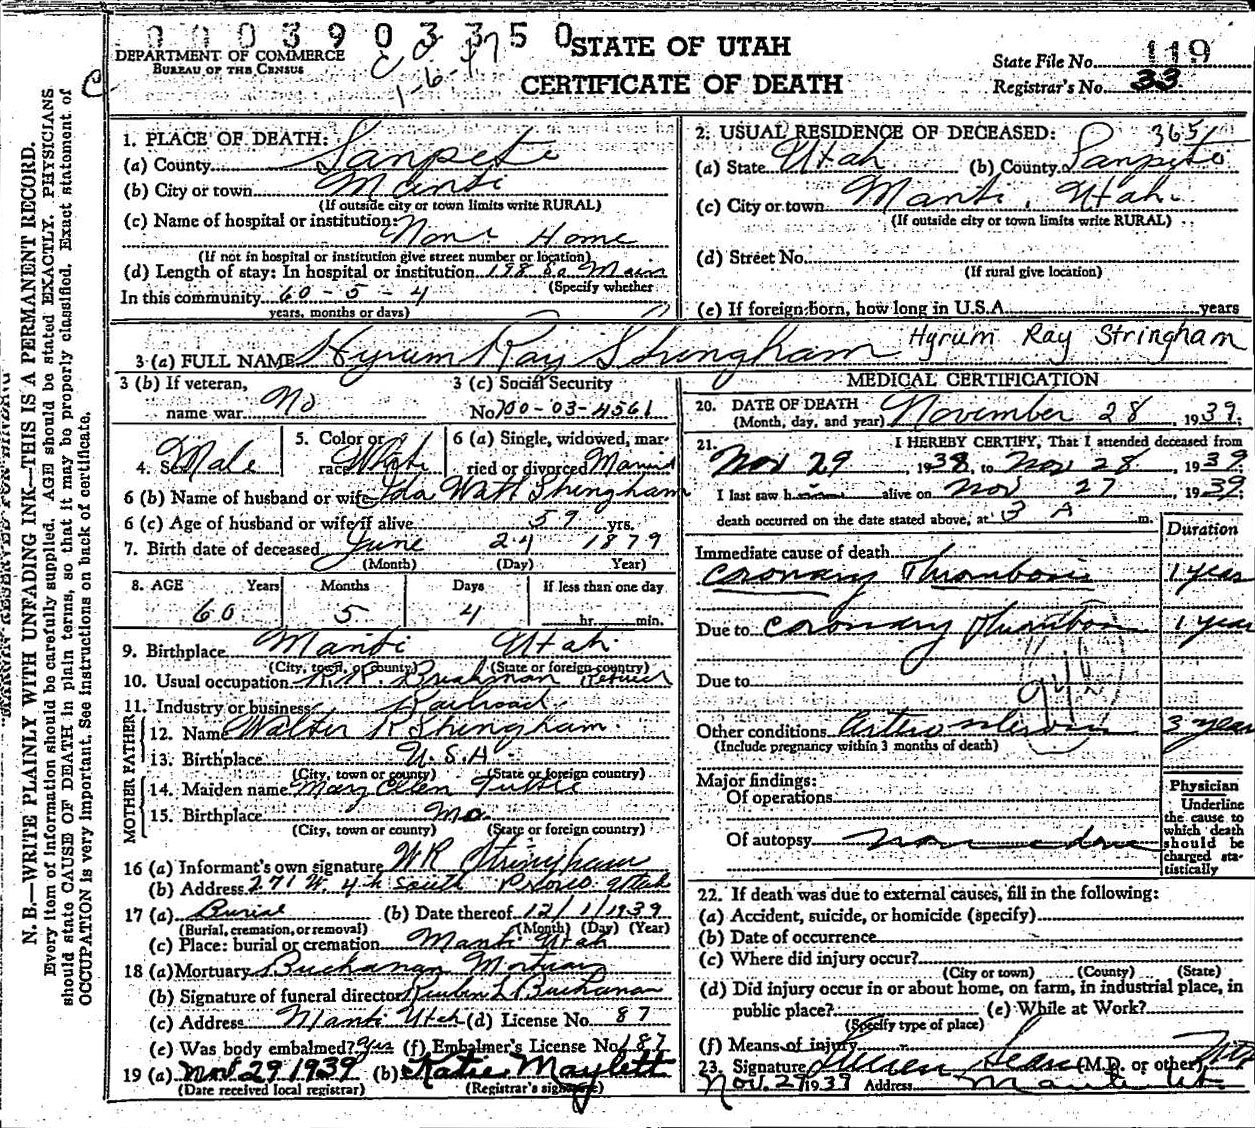 0003903350
DEPARTMENT OF COMMERCE
BUREAU OF THE CENSUS
STATE OF UTAH
CERTIFICATE OF DEATH
State File No. 119
Registrar's No. 33
1-6-
N. B.—WRITE PLAINLY WITH UNFADING INK—THIS IS A PERMANENT RECORD.
Every item of information should be carefully supplied. AGE should be stated EXACTLY. PHYSICIANS
should state CAUSE OF DEATH in plain terms, so that it may be properly classified. Exact statement of
OCCUPATION is very important. See instructions on back of certificate.
1. PLACE OF DEATH:
(a) County Sanpete
(b) City or town Manti
(If outside city or town limits write RURAL)
(c) Name of hospital or institution:
None Home
(If not in hospital or institution give street number or location)
(d) Length of stay: In hospital or institution 198 So. Main
(Specify whether
In this community 60-5-4
years, months or days)
2. USUAL RESIDENCE OF DECEASED: 365
(a) State Utah (b) County Sanpete
(c) City or town Manti, Utah
(If outside city or town limits write RURAL)
(d) Street No.
(If rural give location)
(e) If foreign-born, how long in U.S.A. years
3 (a) FULL NAME Hyrum Ray Stringham Hyrum Ray Stringham
3 (b) If veteran,
name war No
3 (c) Social Security
No. 700-03-4561
4. Sex Male
5. Color or
race White
6 (a) Single, widowed, mar-
ried or divorced Married
6 (b) Name of husband or wife Ida Watt Stringham
6 (c) Age of husband or wife if alive 59 yrs.
7. Birth date of deceased June 24 1879
(Month) (Day) Year)
8. AGE Years Months Days If less than one day
60 5 4 hr. min.
9. Birthplace Manti Utah
(City, town, or county) (State or foreign country)
10. Usual occupation R.R. Brakeman retired
11. Industry or business Railroad
FATHER
12. Name Walter R Stringham
13. Birthplace U.S.A.
(City, town or county) (State or foreign country)
MOTHER
14. Maiden name Mary Ellen Tuttle
15. Birthplace Mo.
(City, town or county) (State or foreign country)
16 (a) Informant's own signature W R Stringham
(b) Address 271 W. 4th South Provo Utah
17 (a) Burial (b) Date thereof 12/1/1939
(Burial, cremation, or removal) (Month) (Day) (Year)
(c) Place: burial or cremation Manti Utah
18 (a) Mortuary Buchanan Mortuary
(b) Signature of funeral director Reuben L Buchanan
(c) Address Manti Utah (d) License No. 87
(e) Was body embalmed? Yes (f) Embalmer's License No. 187
19 (a) Nov 29 1939 (b) Katie Maylett
(Date received local registrar) (Registrar's signature)
MEDICAL CERTIFICATION
20. DATE OF DEATH
(Month, day, and year) November 28, 1939;
21. I HEREBY CERTIFY, That I attended deceased from
Nov 29, 1938, to Nov 28, 1939
I last saw h alive on Nov 27, 1939
death occurred on the date stated above, at 3 A m.
Duration
Immediate cause of death
Coronary Thrombosis 1 year
Due to Coronary 1 year
Due to
Other conditions 3 year
(Include pregnancy within 3 months of death)
Major findings:
Of operations
Of autopsy none done
Physician
Underline
the cause to
which death
should be
charged sta-
tistically
22. If death was due to external causes, fill in the following:
(a) Accident, suicide, or homicide (specify)
(b) Date of occurrence
(c) Where did injury occur?
(City or town) (County) (State)
(d) Did injury occur in or about home, on farm, in industrial place, in
public place? (e) While at Work?
(Specify type of place)
(f) Means of injury
23. Signature (M.D. or other)
Nov. 29 1939 Address Manti Ut